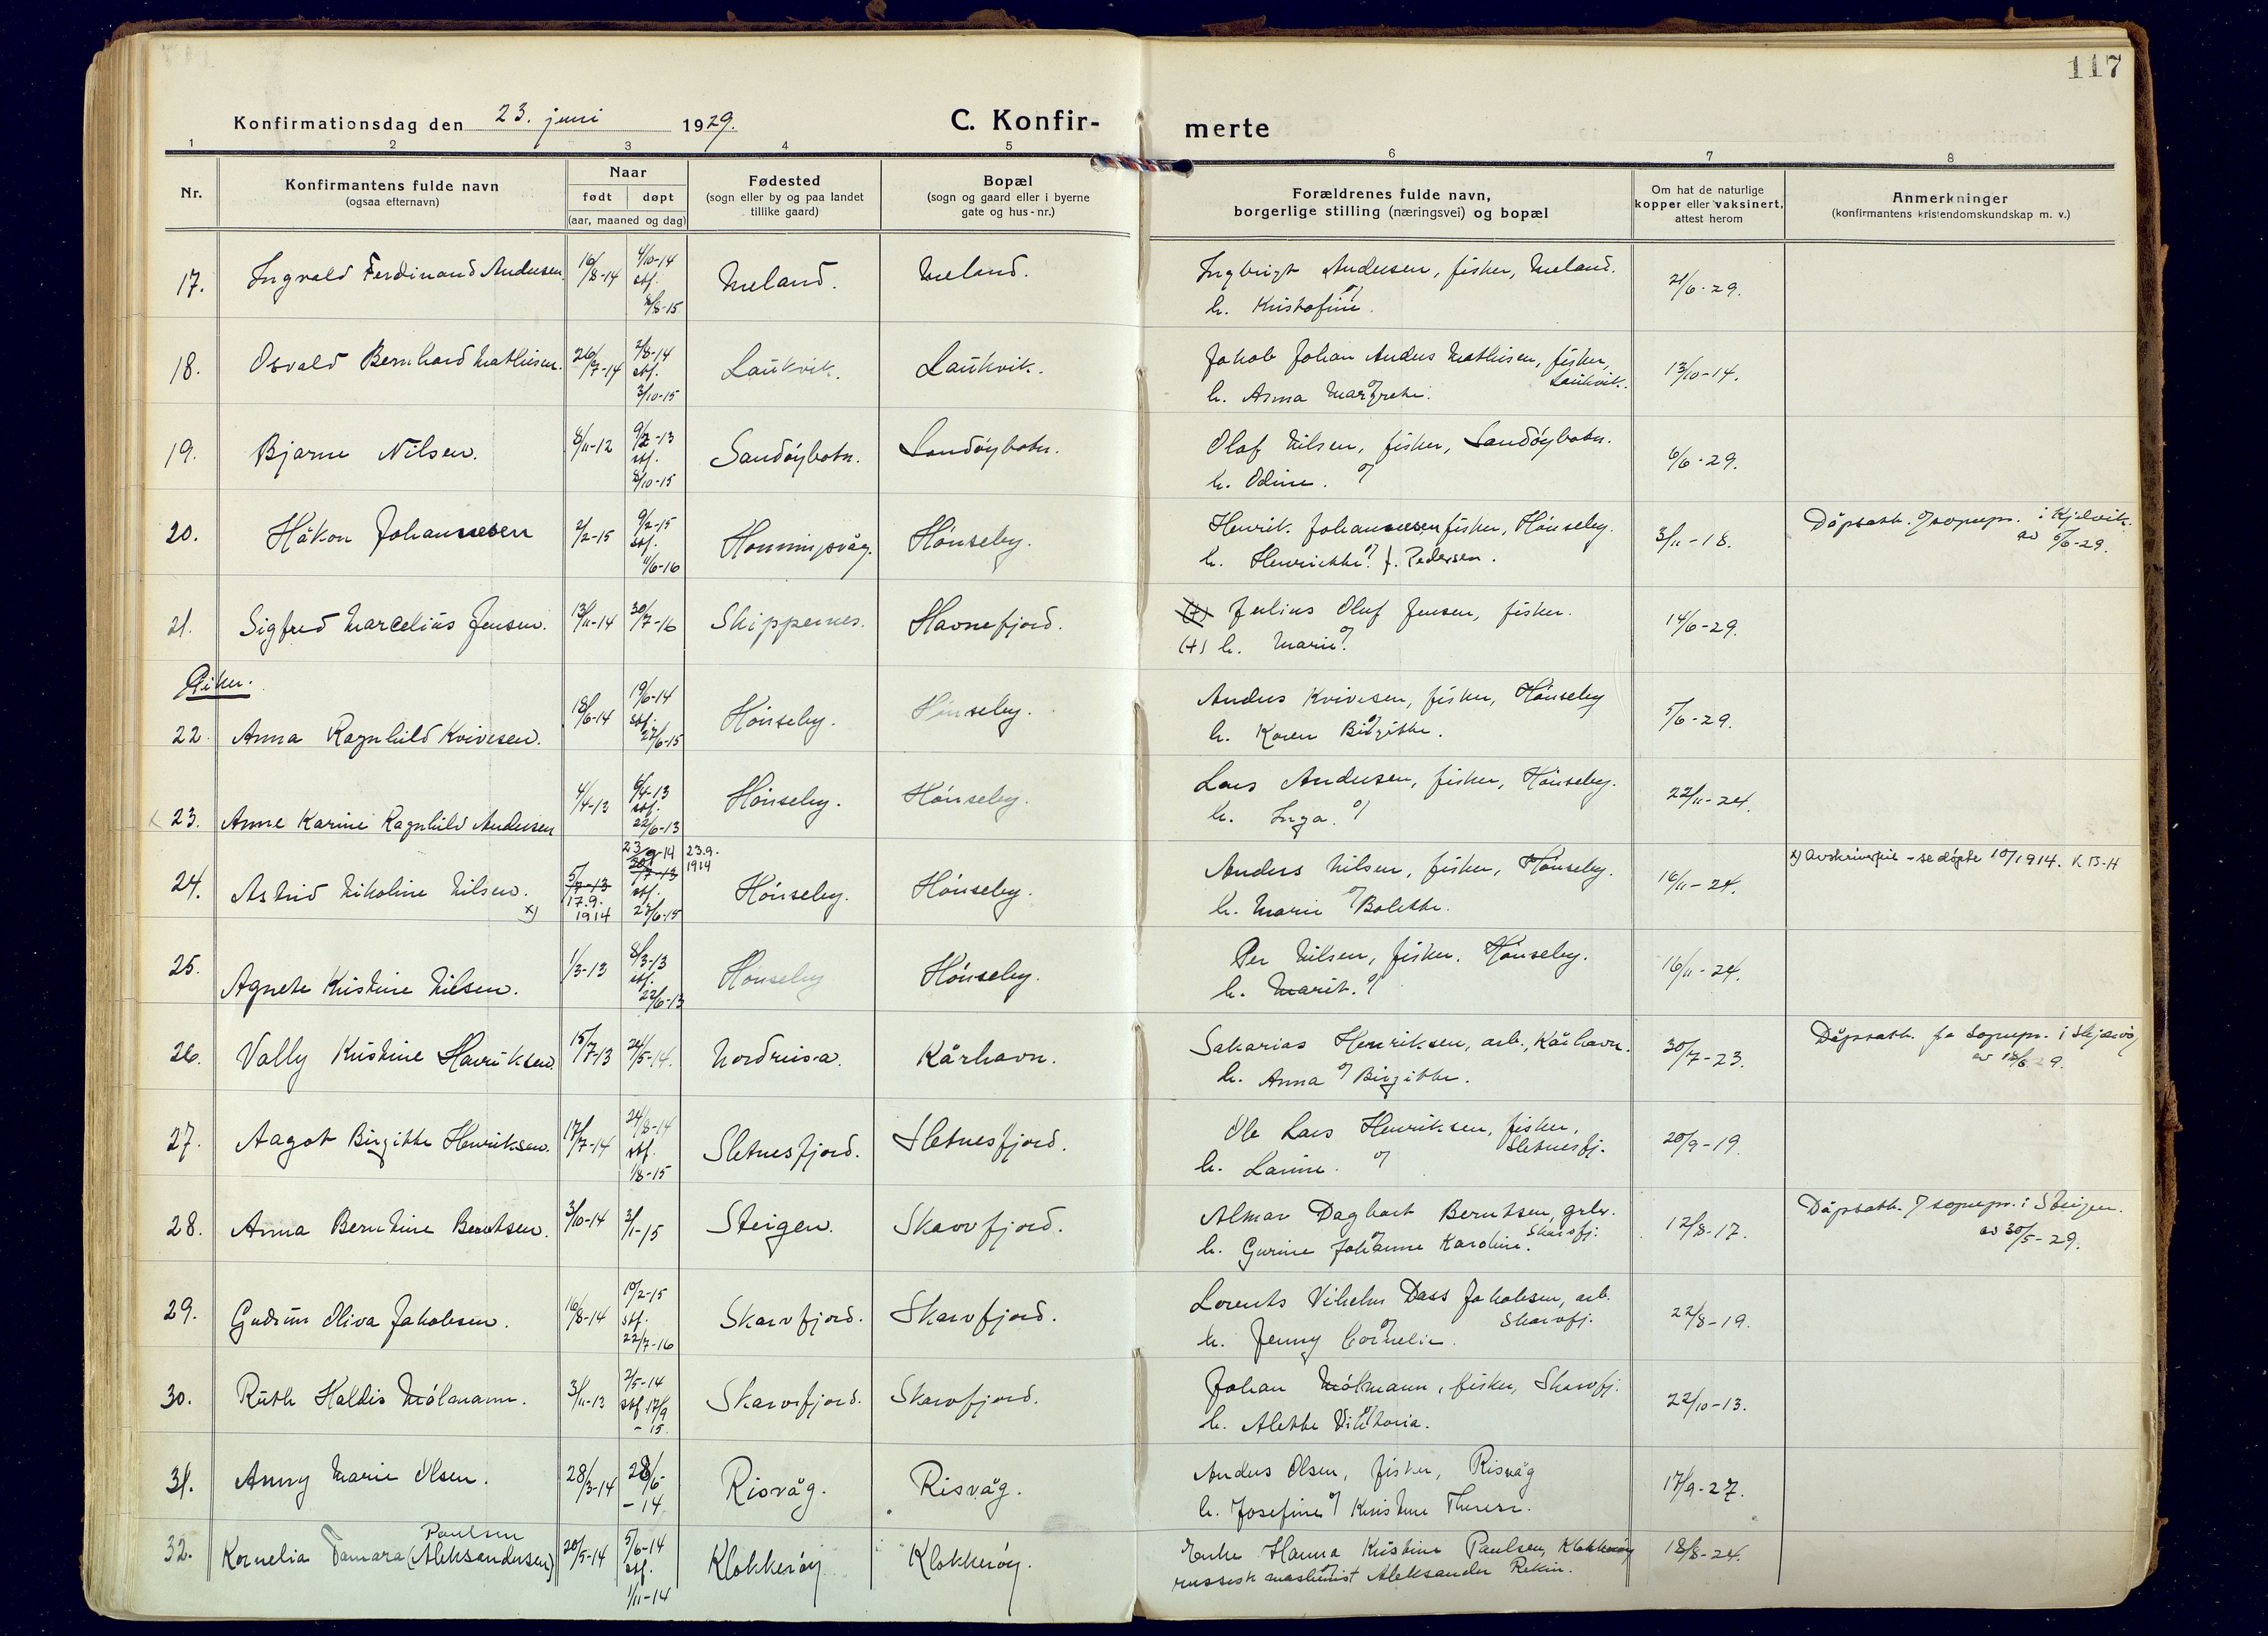 117
Konfirmationsdag den 23. juni 1929.
C. Konfirmerte
1 2 3 4 5 6 7 8
Nr.
Konfirmantens fulde navn
(ogsaa efternavn)
Naar
født døpt
(aar, maaned og dag)
Fødested
(sogn eller by og paa landet
tillike gaard)
Bopæl
(sogn og gaard eller i byerne
gate og hus-nr.)
Forældrenes fulde navn,
borgerlige stilling (næringsvei) og bopæl
Om hat de naturlige
kopper eller vaksinert,
attest herom
Anmerkninger
(konfirmantens kristendomskundskap m. v.)
17. Ingvald Ferdinand Andersen. 16/8-14 4/10-14 stf. 8/8-15 Meland. Meland. Ingbrigt Andersen, fisker, Meland. 21/6-29.
h. Kristofine.
18. Osvald Bernhard Mathisen. 26/7-14 2/8-14 stf. 3/10-15 Laukvik. Laukvik. Jakob Johan Anders Mathisen, fisker, Laukvik. 13/10-14.
h. Anna Margrete.
19. Bjarne Nilsen. 8/11-12 9/2-13 stf. 8/10-15 Sandøybotn. Sandøybotn. Olaf Nilsen, fisker, Sandøybotn. 6/6-29.
h. Odine.
20. Håkon Johannesen 2/2-15 9/2-15 stf. 11/6-16 Honningsvåg. Hønseby. Henrik Johannesen fisker, Hønseby. 3/11-18. Dåpsatt. f sognepr. i Kjelvik.
h. Henrikke f. Pedersen. av 6/6-29.
21. Sigfred Marcelius Jensen. 13/11-14 30/7-16 Skippernes. Havnefjord. (+) Julius Oluf Jensen, fisker. 14/6-29.
(+) h. Marie.
Piker.
22. Anna Ragnhild Kvivesen. 18/6-14 19/6-14 stf. 27/6-15 Hønseby. Hønseby. Anders Kvivesen, fisker, Hønseby 5/6-29.
h. Karen Birgitte.
23. Anne Karine Ragnhild Andersen 4/4-13 6/4-13 stf. 22/6-13 Hønseby. Hønseby. Lars Andersen, fisker, Hønseby. 22/11-24.
h. Inga.
24. Astrid Nikoline Nilsen. x) 5/7-13 17.9. 1914 23/9-14 20/7-13 stf. 27/6-15 23.9. 1914 Hønseby. Hønseby. Anders Nilsen, fisker, Hønseby. 16/11-24. x) Avskriverfeil - se døpte 10/1914. K B-H
h. Marie Bolette.
25. Agnete Kristine Nilsen. 1/3-13 8/3-13 stf. 22/6-13 Hønseby Hønseby. Per Nilsen, fisker. Hønseby. 16/11-24.
h. Marit.
26. Vally Kristine Henriksen. 15/7-13 24/5-14. Nordreisa. Kårhavn. Sakarias Henriksen, arb., Kårhavn. 30/7-23. Dåpsatt. fra Sognepr. i Skjervøy
h. Anna Birgitte. av 18/6 29.
27. Aagot Birgitte Henriksen. 17/7-14 24/8-14 stf. 1/8-15 Sletnesfjord. Sletnesfjord. Ole Lars Henriksen, fisker, Sletnesfj. 20/9-19.
h. Larine.
28. Anna Berntine Berntsen. 3/10-14 3/1-15 Steigen. Skarvfjord. Almar Dagbart Berntsen, grbr. Skarvfj. 12/8-17. Dåpsatt. f sognepr. i Steigen.
h. Gurine Johanne Karoline. av 30/5-29.
29. Gudrun Oliva Jakobsen. 16/8-14 10/2-15 stf. 22/7-16 Skarvfjord. Skarvfjord. Lorents Vilhelm Dass Jakobsen, arb. Skarvfj. 22/8-19.
h. Jenny Cornelie.
30. Ruth Haldis Mølmann. 3/11-13 2/5-14 stf 17/9-15. Skarvfjord. Skarvfjord. Johan Mølmann, fisker, Skarvfj. 22/10-13.
h. Alette Viktoria.
31. Anny Marie Olsen. 28/3-14 28/6-14 Risvåg. Risvåg. Anders Olsen, fisker, Risvåg 17/9-27.
h. Josefine Kristine Therese.
32. Kornelia Tamara Paulsen (Aleksandersen) 20/5-14 5/6-14 stf. 1/11-14 Klokkerøy Klokkerøy. Enke Hanna Kristine Paulsen, Klokkerøy 18/8-24.
russisk maskinist Aleksander Rekin.